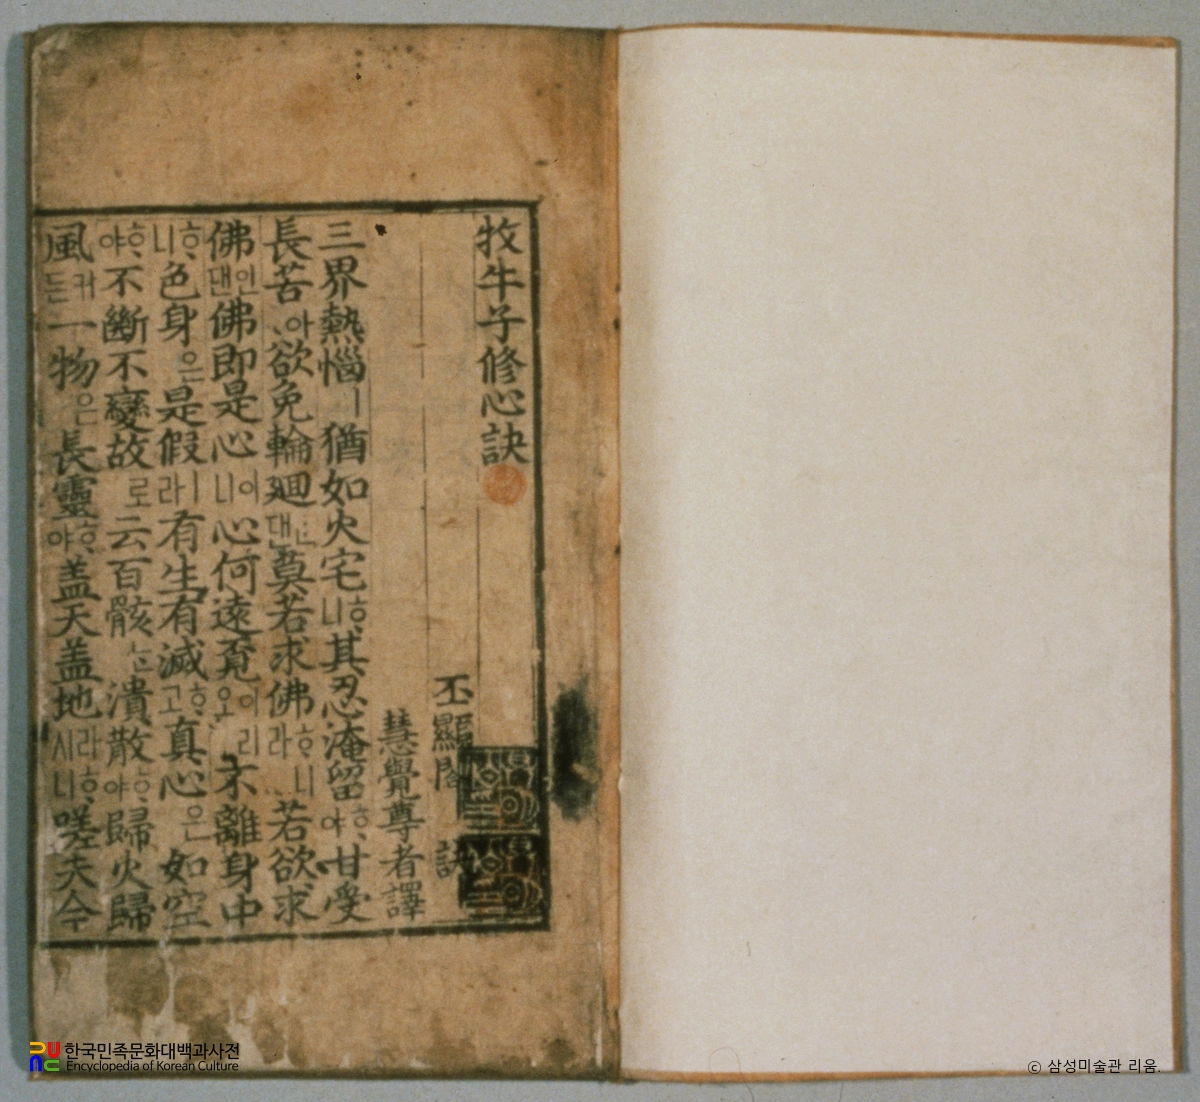 牧牛子修心訣
丕顯閤 訣
慧覺尊者譯
三界熱惱ㅣ猶如火宅ᄒᆞ니其忍淹留ᄒᆞ야甘受
長苦아欲免輪廻ㄴ댄莫若求佛ᄒᆞ니라若欲求
佛인댄佛即是心이니心何遠覓이리오不離身中
ᄒᆞ니色身은是假ㅣ라有生有滅ᄒᆞ고真心은如空
ᄒᆞ야不斷不變故로云百骸ᄂᆞᆫ潰散ᄒᆞ야歸火歸
風커든一物은長靈ᄒᆞ야盖天盖地라ᄒᆞ시니嗟夫今
한국민족문화대백과사전
Encyclopedia of Korean Culture
© 삼성미술관 리움.